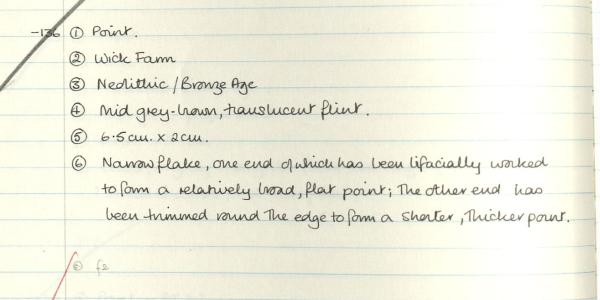 -136 ① Point.
② Wick Farm
③ Neolithic / Bronze Age
④ Mid grey-brown, translucent flint.
⑤ 6.5cm. x 2cm.
⑥ Narrow flake, one end of which has been bifacially worked
to form a relatively broad, flat point; The other end has
been trimmed round The edge to form a shorter, Thicker point.